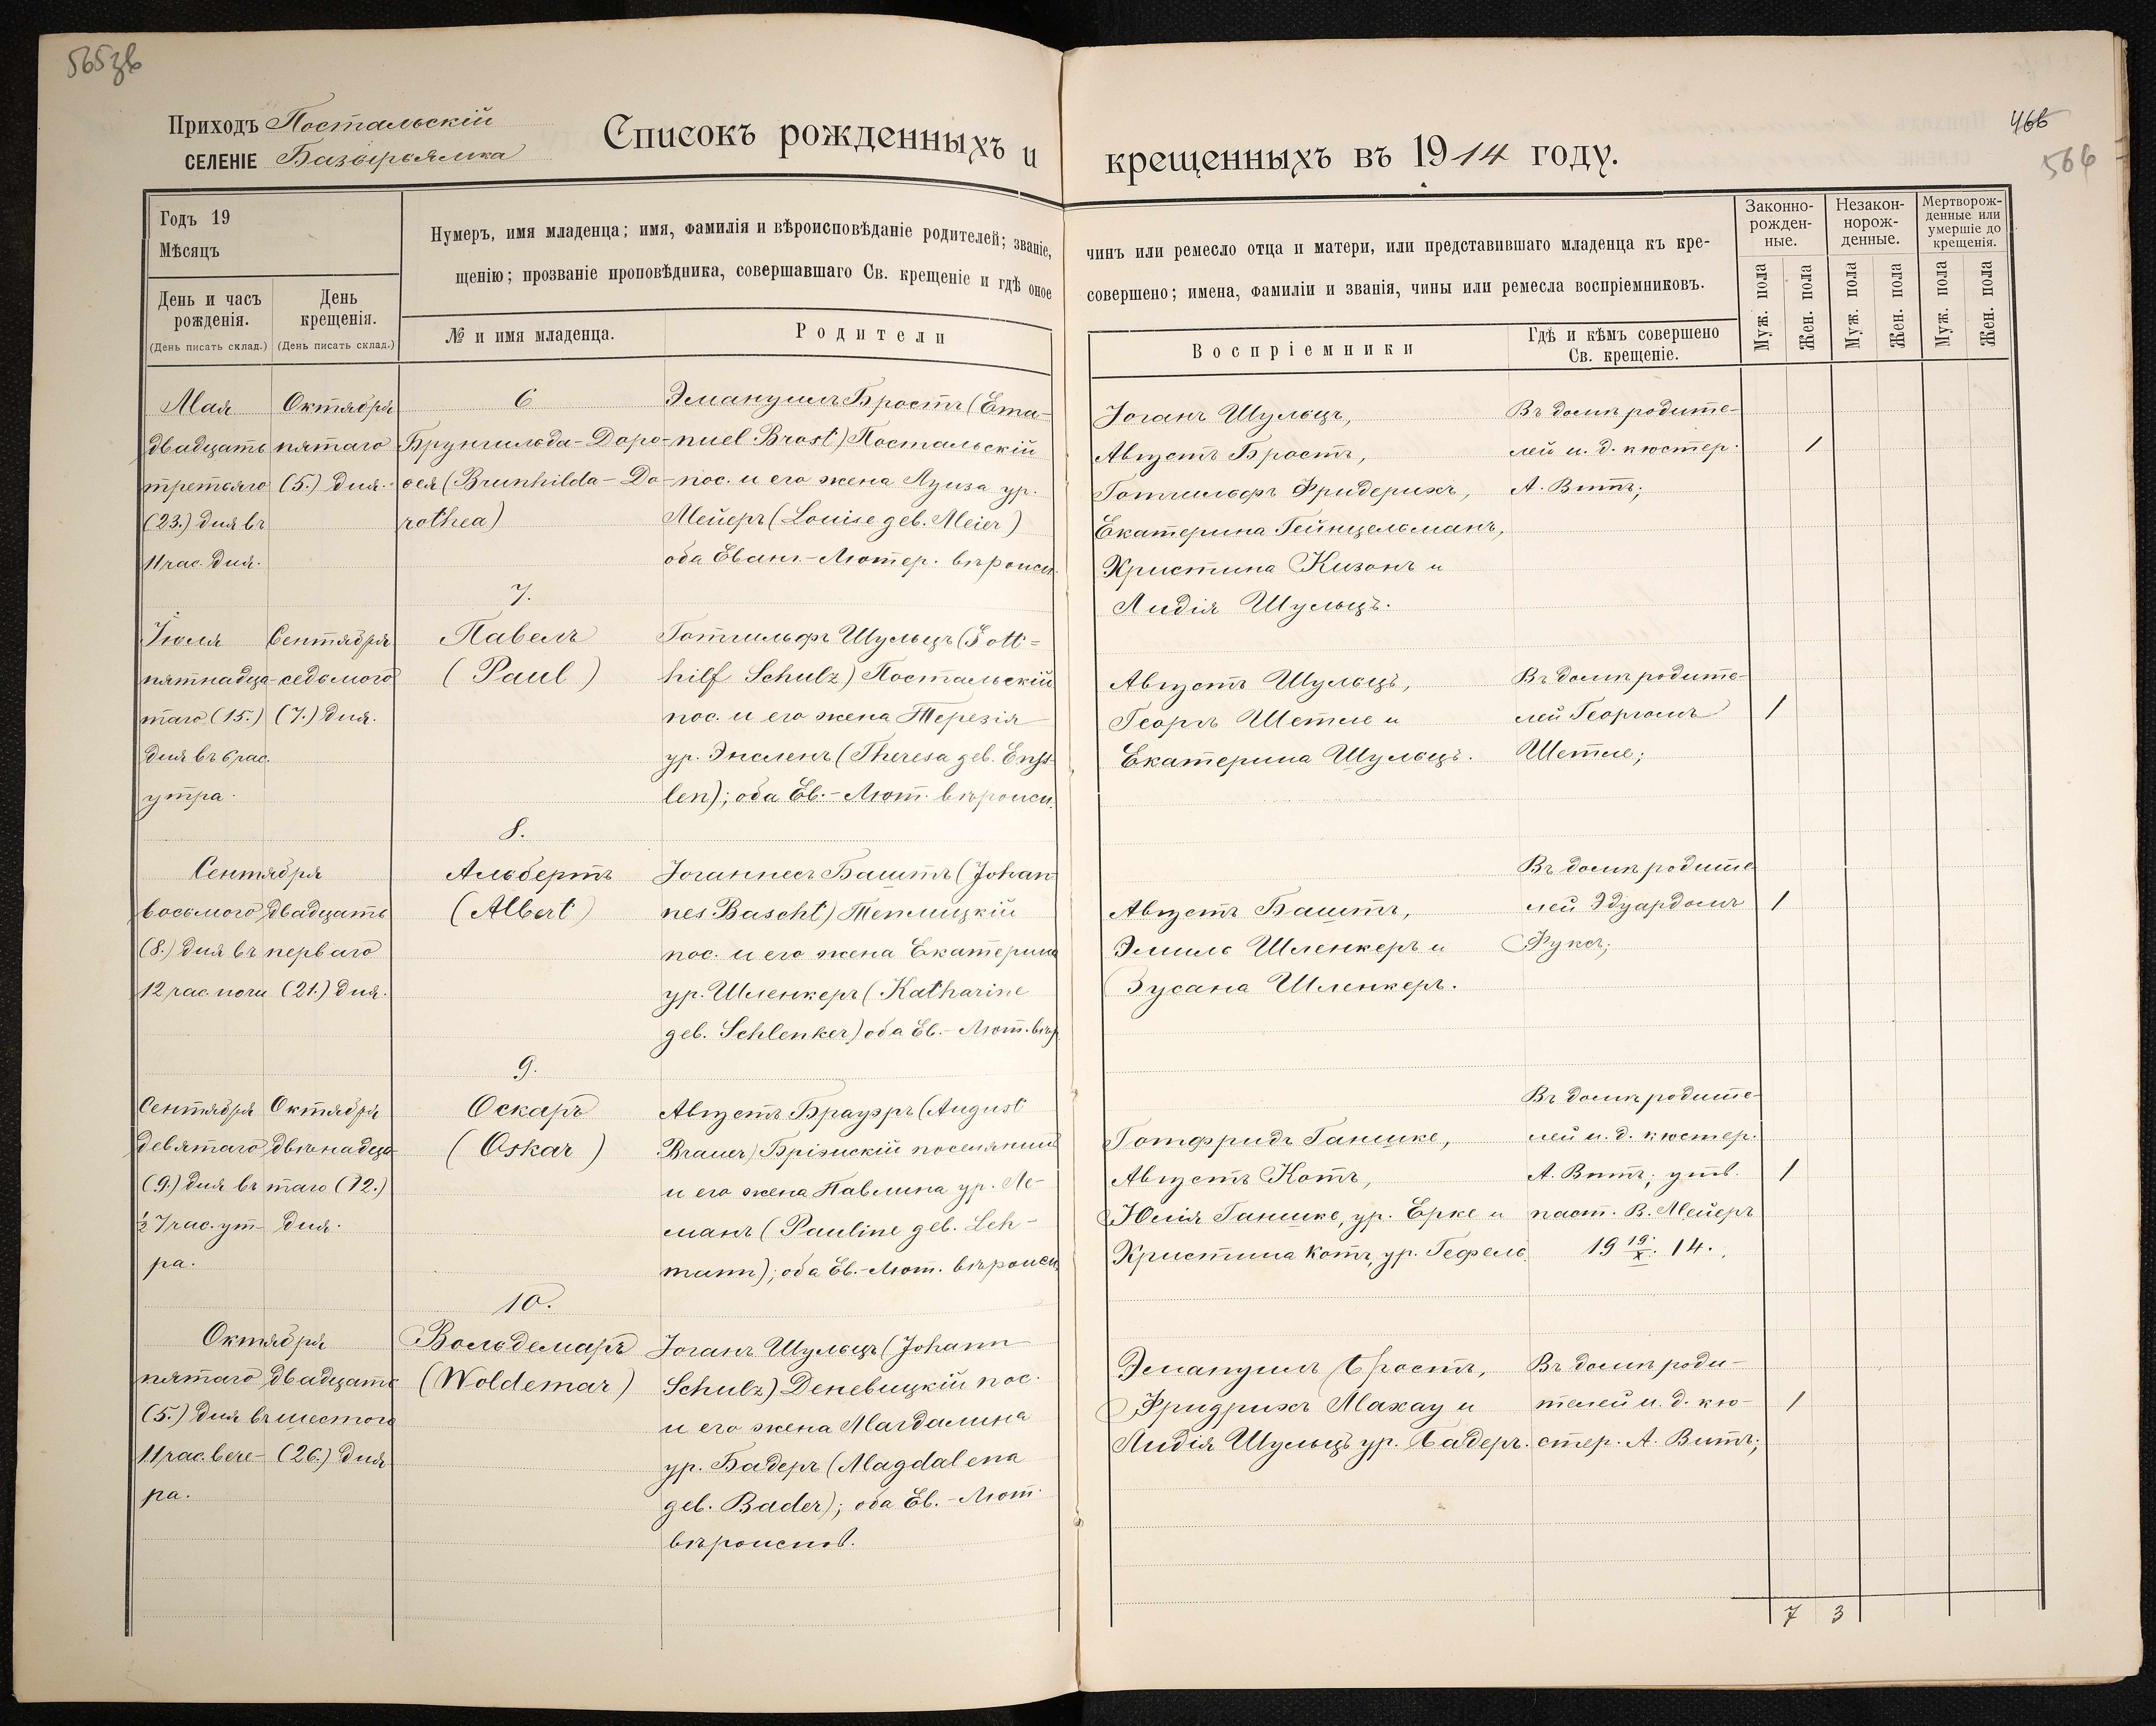 565зв
Приходъ Постальскій
СЕЛЕНІЕ Базырьямка
Списокъ рожденныхъ и крещенныхъ въ 1914 году.
466
566
Годъ 19
Мѣсяцъ
День и часъ рожденія.
(День писать склад.)
День крещенія.
(День писать склад.)
Нумеръ, имя младенца; имя, фамилія и вѣроисповѣданіе родителей; званіе, чинъ или ремесло отца и матери, или представившаго младенца къ кре-
щенію; прозваніе проповѣдника, совершавшаго Св. крещеніе и гдѣ оное совершено; имена, фамиліи и званія, чины или ремесла воспріемниковъ.
№ и имя младенца.
Родители
Воспріемники
Гдѣ и кѣмъ совершено
Св. крещеніе.
Законно-
рожден-
ные.
Незакон-
норож-
денные.
Мертворож-
денные или
умершіе до
крещенія.
Муж. пола
Жен. пола
Муж. пола
Жен. пола
Муж. пола
Жен. пола
Мая
двадцать
третьяго
(23.) дня въ
11 час. дня.
Октября
пятаго
(5.) дня.
6
Брунгильда-Доро-
ѳея (Brunhilda-Do-
rothea)
Эмануилъ Бростъ (Ema-
nuel Brost) Постальскій
пос. и его жена Луиза ур.
Мейеръ (Louise geb. Meier)
оба Еванг.-Лютер. вѣроисп.
Іоганъ Шульцъ,
Августъ Бростъ,
Готгильфъ Фридерихъ,
Екатерина Гейнцельманъ,
Христина Кизонъ и
Лидія Шульцъ.
Въ домѣ родите-
лей и. д. кюстер.
А. Витъ;
1
7.
Іюля
пятнадца-
таго (15.)
дня въ 6 час.
утра.
Сентября
седьмого
(7.) дня.
Павелъ
(Paul)
Готгильфъ Шульцъ (Gott-
hilf Schulz) Постальскій
пос. и его жена Терезія
ур. Энсленъ (Theresa geb. Enss-
len); оба Ев.-Лют. вѣроисп.
Августъ Шульцъ,
Георгъ Шетле и
Екатерина Шульцъ.
Въ домѣ родите-
лей Георгомъ
Шетле;
1
8.
Сентября
восьмого
(8.) дня въ
12 час. ночи
двадцать
перваго
(21.) дня.
Альбертъ
(Albert)
Іоганнесъ Баштъ (Johan-
nes Bascht) Теплицкій
пос. и его жена Екатерина
ур. Шленкеръ (Katharine
geb. Schlenker) оба Ев.-Лют. вѣр.
Августъ Баштъ,
Эмиль Шленкеръ и
Зусана Шленкеръ.
Въ домѣ родите-
лей Эдуардомъ
Фуксъ;
1
9.
Сентября
девятаго
(9.) дня въ
½ 7 час. ут-
ра.
Октября
двѣнадца-
таго (12.)
дня.
Оскаръ
(Oskar)
Августъ Брауэръ (August
Brauer) Бріэнскій поселянинъ
и его жена Павлина ур. Ле-
манъ (Pauline geb. Leh-
mann); оба Ев.-Лют. вѣроисп.
Готфридъ Ганшке,
Августъ Котъ,
Юлія Ганшке, ур. Ерке и
Христина Котъ, ур. Гефель.
Въ домѣ родите-
лей и. д. кюстер.
А. Витъ; утв.
паст. В. Мейеръ
19 19/X. 14.
1
10.
Октября
пятаго
(5.) дня въ
11 час. вече-
ра.
двадцать
шестого
(26.) дня
Вольдемаръ
(Woldemar)
Іоганъ Шульцъ (Johann
Schulz) Деневицкій пос.
и его жена Магдалина
ур. Бадеръ (Magdalena
geb. Bader); оба Ев.-Лют.
вѣроиспов.
Эмануилъ Бростъ,
Фридрихъ Махау и
Лидія Шульцъ ур. Бадеръ.
Въ домѣ роди-
телей и. д. кю-
стер. А. Витъ;
1
7 3